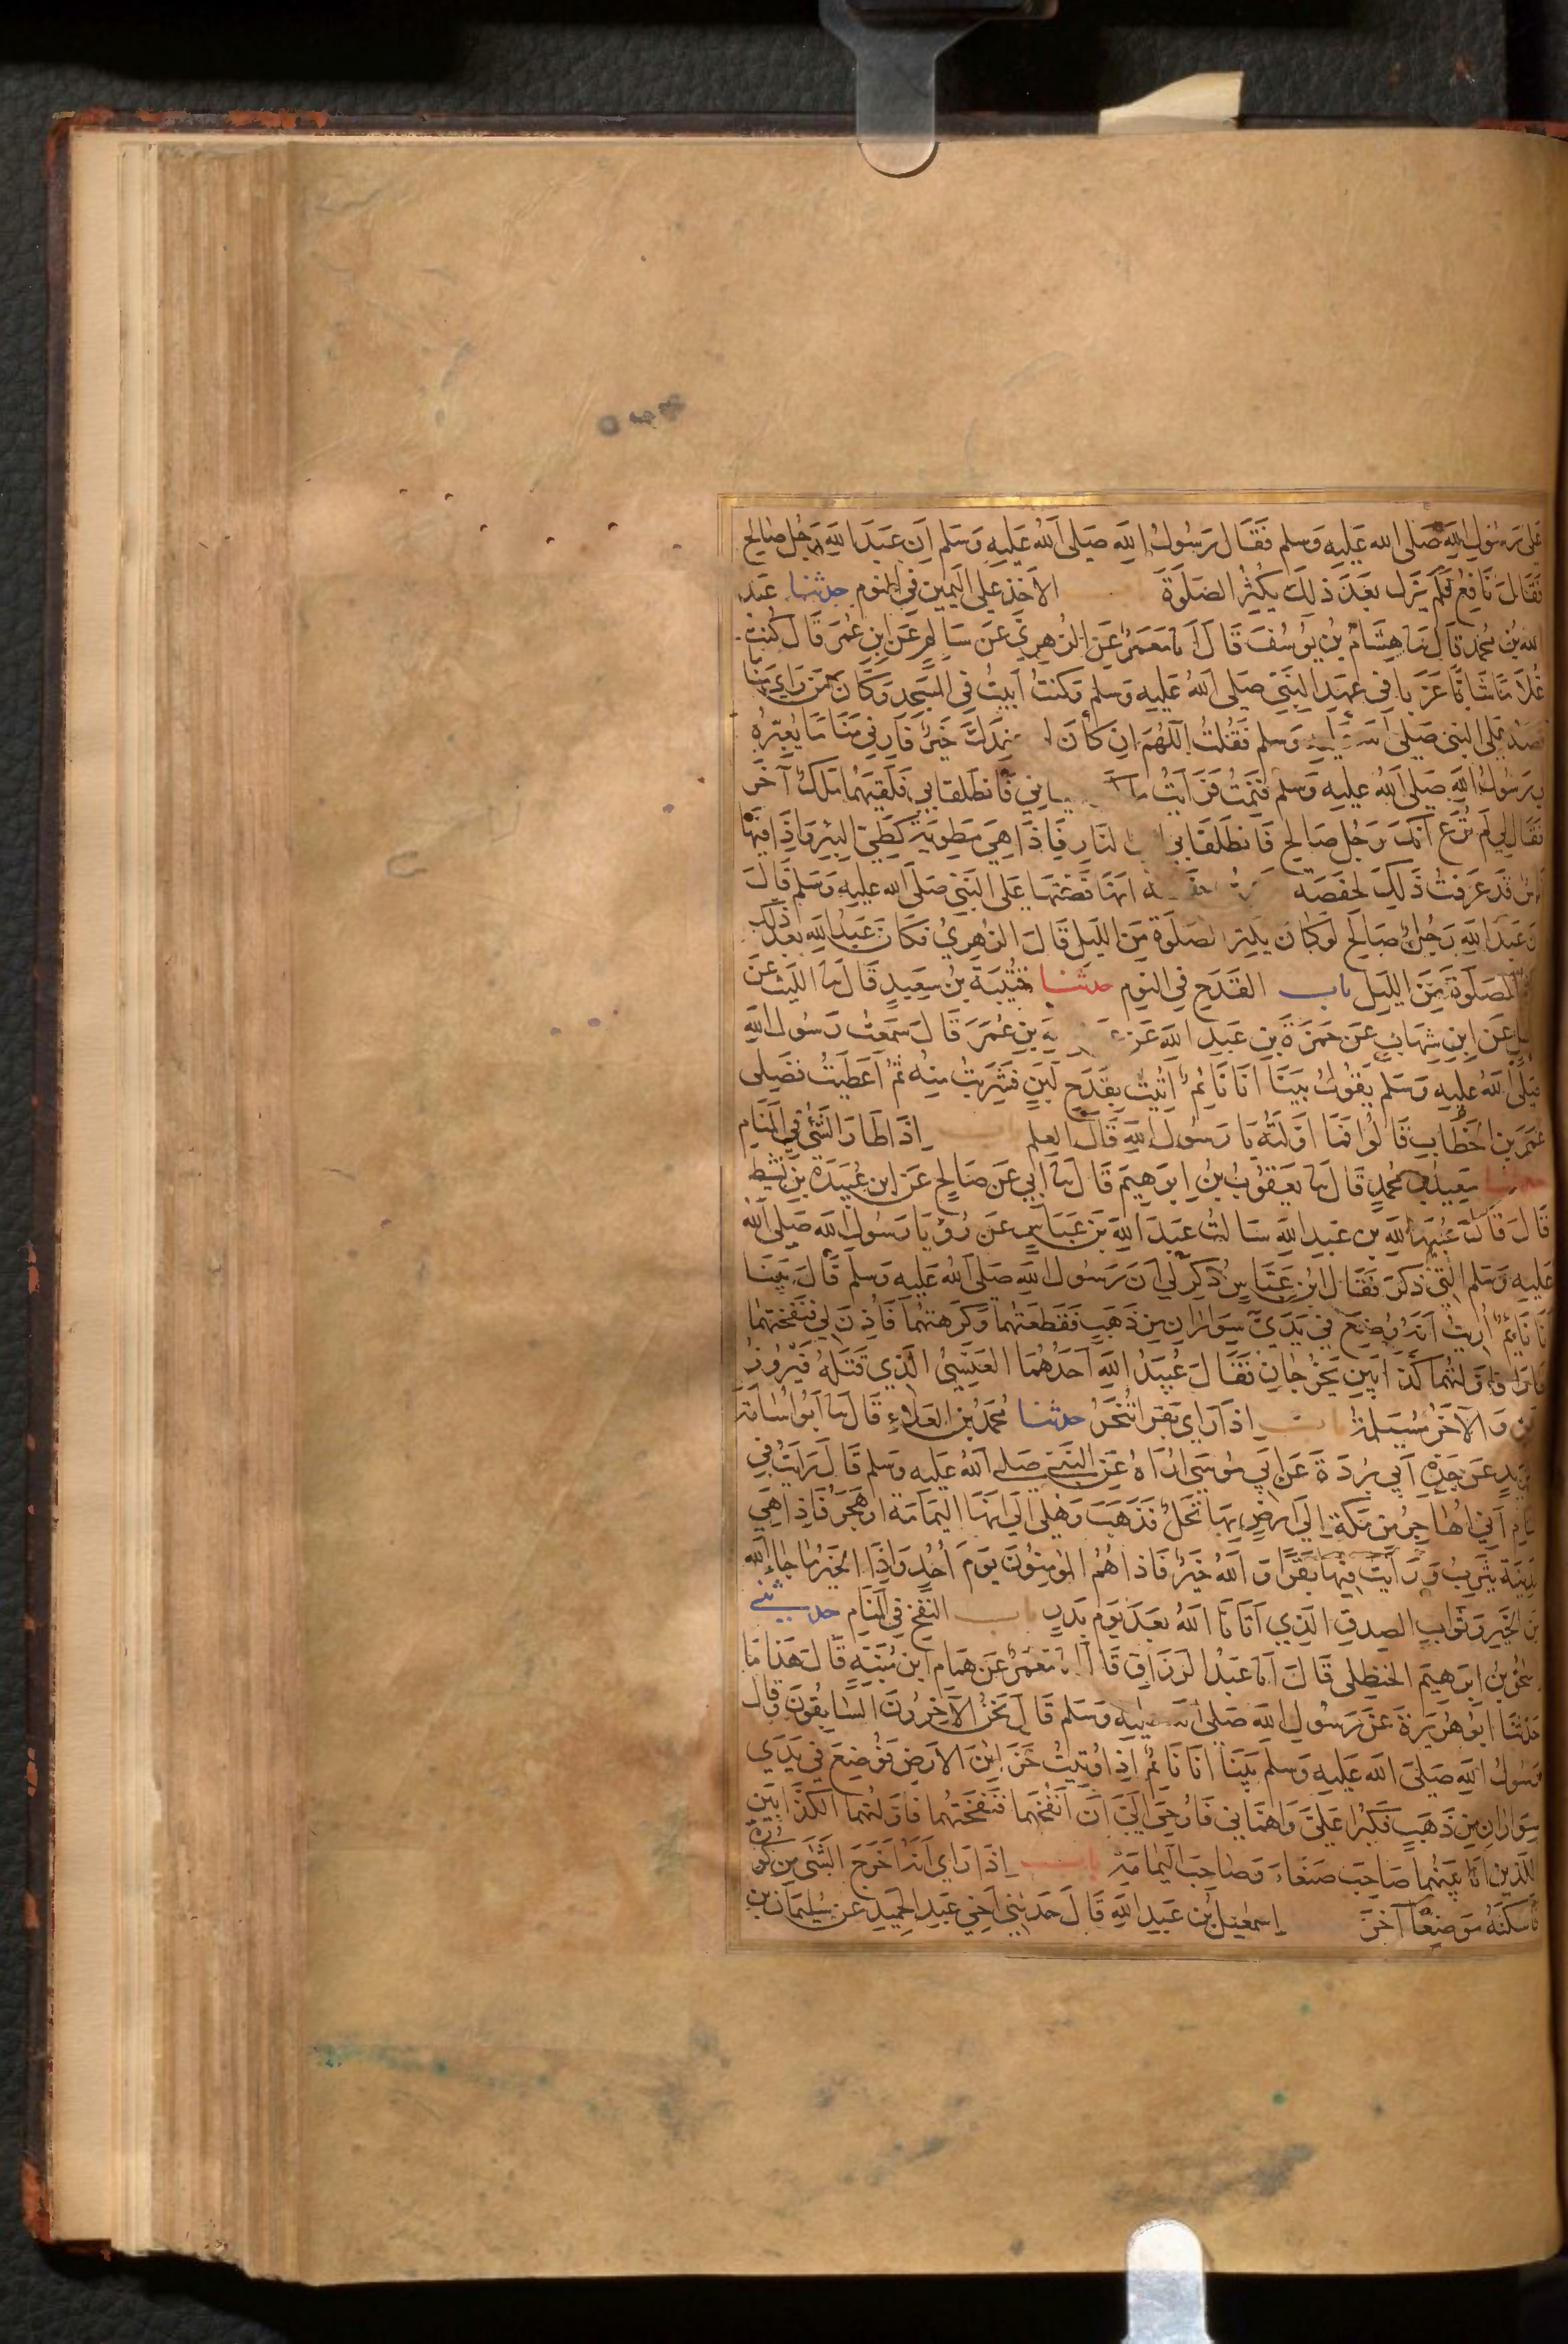 على رسول الله صلى الله عليه وسلم فقال رسول الله صلى الله عليه وسلم ان عبد الله رجل صالح
فقال نافع فلم يزل بعد ذلك يكثر الصلوة الاخذ على اليمين في النوم حدثنا عبد
الله بن محمد قال نا هشام بن يوسف قال انا معمر عن الزهري عن سالم عن ابن عمر قال كنت
غلاما شابا عزبا في عهد النبي صلى الله عليه وسلم وكنت ابيت في المسجد وكان من راى مناما
قصه على النبي صلى الله عليه وسلم فقلت اللهم ان كان لي عندك خير فارني مناما يعبره
لي رسول الله صلى الله عليه وسلم فنمت فرايت فانطلقا بي فلقيهما ملك آخر
فقال لي لم ترع انك رجل صالح فانطلقا بي الى النار فاذا هي مطوية كطي البئر واذا فيها
ناس قد عرفت ذلك لحفصة انها قصتها على النبي صلى الله عليه وسلم قال
ان عبد الله رجل صالح لو كان يكثر الصلوة من الليل قال الزهري فكان عبد الله بعد ذلك
يكثر الصلوة من الليل باب القدح في النوم حدثنا قتيبة بن سعيد قال نا الليث عن
عقيل عن ابن شهاب عن حمزة بن عبد الله عن بن عمر قال سمعت رسول الله
صلى الله عليه وسلم يقول بينا انا نائم اتيت بقدح لبن فشربت منه ثم اعطيت فضلي
عمر بن الخطاب قالوا فما اولته يا رسول الله قال العلم باب اذا طار الشئ في المنام
حدثنا سعيد بن محمد قال نا يعقوب بن ابرهيم قال نا ابي عن صالح عن ابن عبيدة بن نشيط
قال قال عبيد الله بن عبد الله سالت عبد الله بن عباس عن رؤيا رسول الله صلى الله
عليه وسلم التي ذكر فقال ابن عباس ذكر لي ان رسول الله صلى الله عليه وسلم قال بينا
انا نائم اريت انه وضع في يدي سواران من ذهب فقطعتهما وكرهتهما فاذن لي فنفختهما
فطارا فاولتهما كذابين يخرجان فقال عبيد الله احدهما العنسي الذي قتله فيروز
باليمن والآخر مسيلمة باب اذا راى بقرا تنحر حدثنا محمد بن العلاء قال نا ابو اسامة
عن بريد عن جده ابي بردة عن ابي موسى اراه عن النبي صلى الله عليه وسلم قال رايت في
المنام اني اهاجر من مكة الى ارض بها نخل فذهب وهلي الى انها اليمامة او هجر فاذا هي
المدينة يثرب ورايت فيها بقرا والله خير فاذا هم المومنون يوم احد واذا الخير ما جاء الله
من الخير وثواب الصدق الذي آتانا الله بعد يوم بدر باب النفخ في المنام حدثني
اسحق بن ابرهيم الحنظلي قال انا عبد الرزاق قال انا معمر عن همام ابن منبه قال هذا ما
حدثنا ابو هريرة عن رسول الله صلى الله عليه وسلم قال نحن الآخرون السابقون وقال
رسول الله صلى الله عليه وسلم بينا انا نائم اذ اوتيت خزائن الارض فوضع في يدي
سواران من ذهب فكبرا علي واهماني فاوحي الي ان انفخهما فنفختهما فاولتهما الكذابين
الذين انا بينهما صاحب صنعاء وصاحب اليمامة باب اذا راى انه اخرج الشئ من كورة
فاسكنه موضعا آخر اسمعيل بن عبد الله قال حدثني اخي عبد الحميد عن سليمان بن